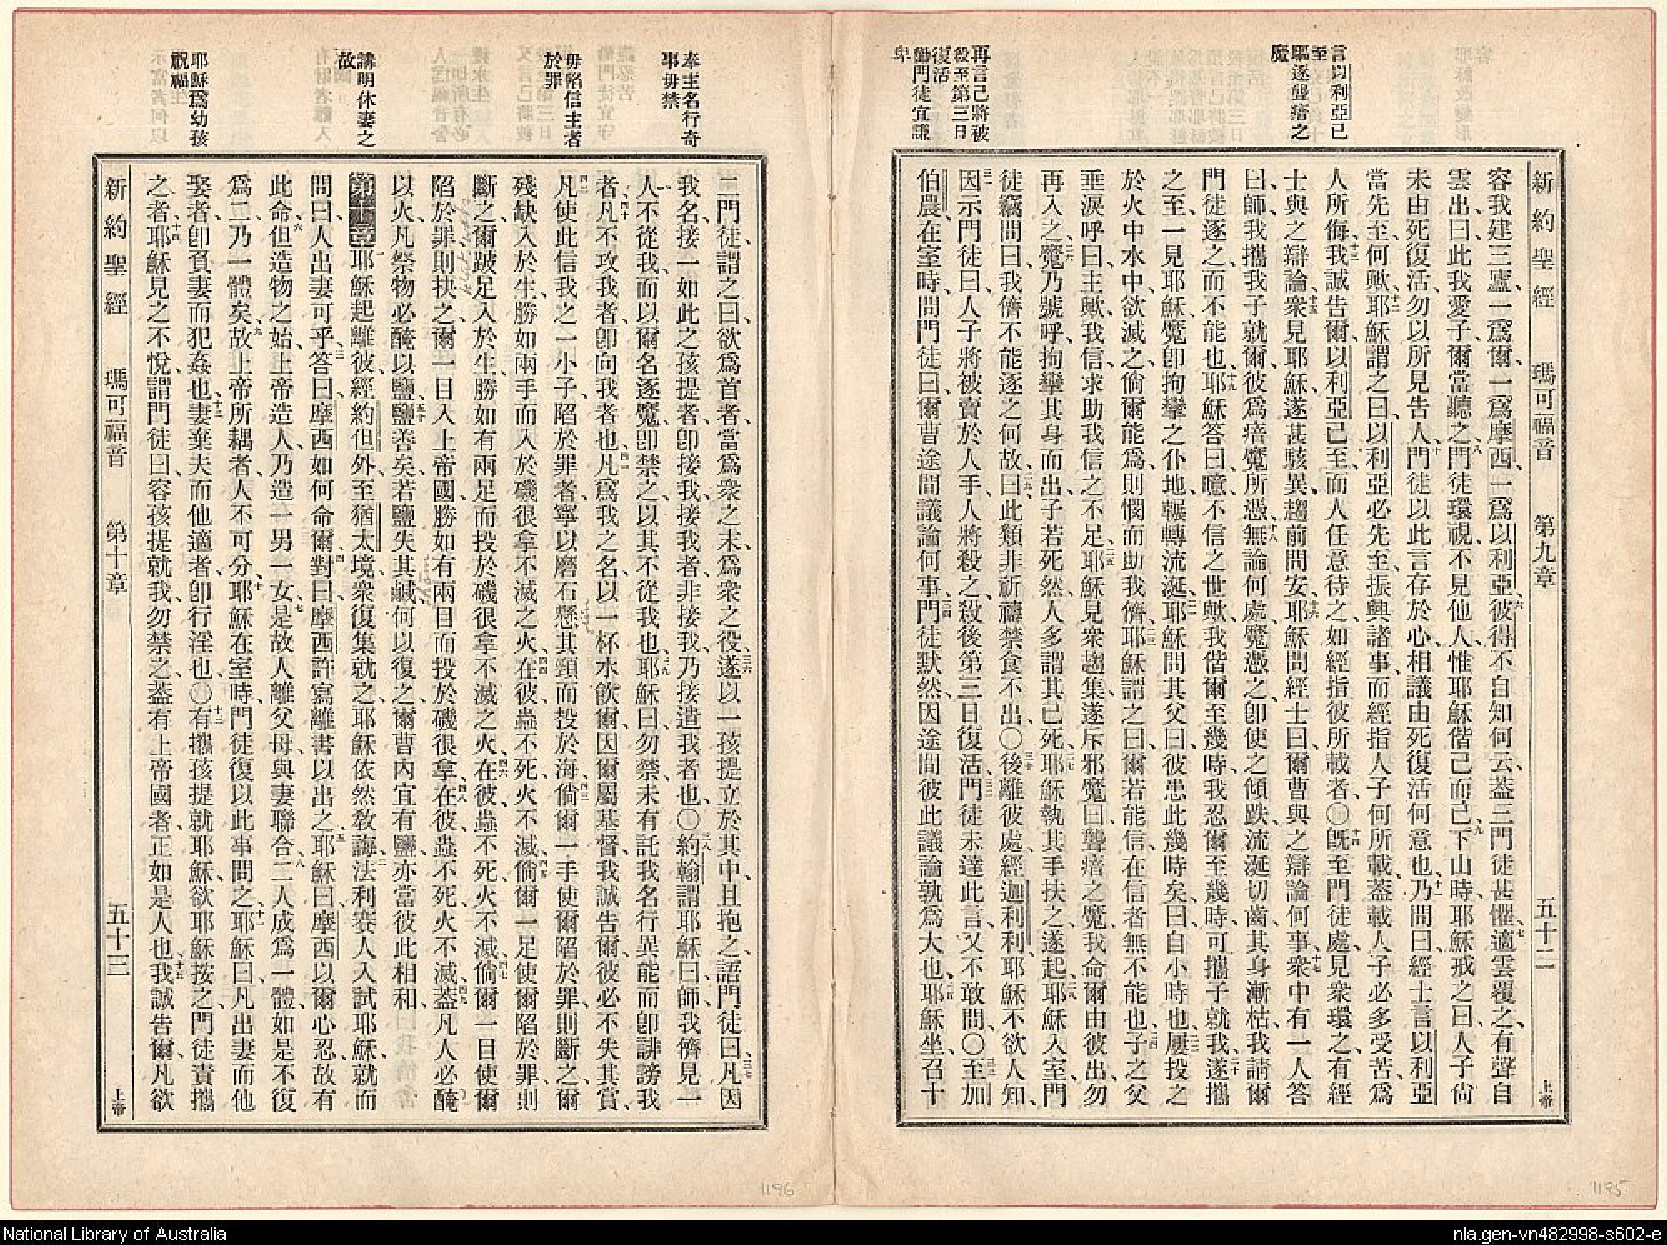 新約聖經 瑪可福音 第九章 五十二 上帝
言以利亞已
至
耶逐聾瘖之
魔
再言己將被
殺至第三日
復活
勸門徒宜謙
卑
容我建三廬、一爲爾、一爲摩西、一爲以利亞、彼得不自知何云、蓋三門徒甚懼、適雲覆之、有聲自
雲出曰、此我愛子、爾當聽之、門徒環視、不見他人、惟耶穌偕己而已、下山時、耶穌戒之曰、人子尚
未由死復活、勿以所見告人、門徒以此言存於心、相議由死復活何意也、乃問曰、經士言以利亞
當先至何歟、耶穌謂之曰、以利亞必先至、振興諸事、而經指人子何所載、蓋載人子必多受苦、爲
人所侮、我誠告爾、以利亞已至、而人任意待之、如經指彼所載者、〇旣至門徒處、見衆環之、有經
士與之辯論、衆見耶穌、遂甚駭異、趨前問安、耶穌問經士曰、爾曹與之辯論何事、衆中有一人答
曰、師、我攜我子就爾、彼爲瘖魔所憑、無論何處、魔憑之、卽使之傾跌、流涎切齒、其身漸枯、我請爾
門徒逐之、而不能也、耶穌答曰、噫、不信之世歟、我偕爾至幾時、我忍爾至幾時、可攜子就我、遂攜
之至、一見耶穌、魔卽拘攣之、仆地輾轉流涎、耶穌問其父曰、彼患此幾時矣、曰、自小時也、屢投之
於火中水中、欲滅之、倘爾能爲、則憫而助我儕、耶穌謂之曰、爾若能信、在信者無不能也、子之父
垂淚呼曰、主歟、我信、求助我信之不足、耶穌見衆趨集、遂斥邪魔曰、聾瘖之魔、我命爾由彼出、勿
再入之、魔乃號呼、拘攣其身而出、子若死然、人多謂其已死、耶穌執其手扶之、遂起、耶穌入室、門
徒竊問曰、我儕不能逐之何故、曰、此類非祈禱禁食不出、〇後離彼處、經迦利利、耶穌不欲人知、
因示門徒曰、人子將被賣於人手、人將殺之、殺後第三日復活、門徒未達此言、又不敢問、〇至加
伯農、在室時、問門徒曰、爾曹途間議論何事、門徒默然、因途間彼此議論孰爲大也、耶穌坐、召十
奉主名行奇
事毋禁
毋陷信主者
於罪
講明休妻之
故
耶穌爲幼孩
祝福
二門徒謂之曰、欲爲首者、當爲衆之末、爲衆之役、遂以一孩提立於其中、且抱之、語門徒曰、凡因
我名、接一如此之孩提者、卽接我、接我者、非接我、乃接遣我者也、〇約翰謂耶穌曰、師、我儕見一
人、不從我、而以爾名逐魔、卽禁之、以其不從我也、耶穌曰、勿禁、未有託我名行異能、而卽誹謗我
者、凡不攻我者、卽向我者也、凡爲我之名、以一杯水飲爾、因爾屬基督、我誠告爾、彼必不失其賞、
凡使此信我之一小子、陷於罪者、寧以磨石懸其頸而投於海、倘爾一手使爾陷於罪、則斷之、爾
殘缺入於生、勝如兩手而入於磯很拿不滅之火、在彼蟲不死、火不滅、倘爾一足使爾陷於罪、則
斷之、爾跛足入於生、勝如有兩足而投於磯很拿不滅之火、在彼蟲不死、火不滅、倘爾一目使爾
陷於罪、則抉之、爾一目入上帝國、勝如有兩目而投於磯很拿、在彼蟲不死、火不滅、蓋凡人必醃
以火、凡祭物必醃以鹽、鹽善矣、若鹽失其鹹、何以復之、爾曹內宜有鹽、亦當彼此相和、
第十章 耶穌起離彼、經約但外、至猶太境、衆復集就之、耶穌依然敎誨、法利賽人入試耶穌、就而
問曰、人出妻可乎、答曰、摩西如何命爾、對曰、摩西許寫離書以出之、耶穌曰、摩西以爾心忍、故有
此命、但造物之始、上帝造人、乃造一男一女、是故人離父母、與妻聯合、二人成爲一體、如是不復
爲二、乃一體矣、故上帝所耦者、人不可分、耶穌在室時、門徒復以此事問之、耶穌曰、凡出妻而他
娶者、卽負妻而犯姦也、妻棄夫而他適者、卽行淫也、〇有攜孩提就耶穌、欲耶穌按之、門徒責攜
之者、耶穌見之不悅、謂門徒曰、容孩提就我、勿禁之、蓋有上帝國者、正如是人也、我誠告爾、凡欲
新約聖經 瑪可福音 第十章 五十三 上帝
1196
1195
National Library of Australia
nla.gen-vn482998-s602-e